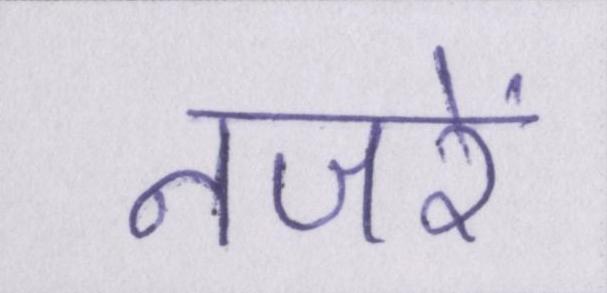 नजरें